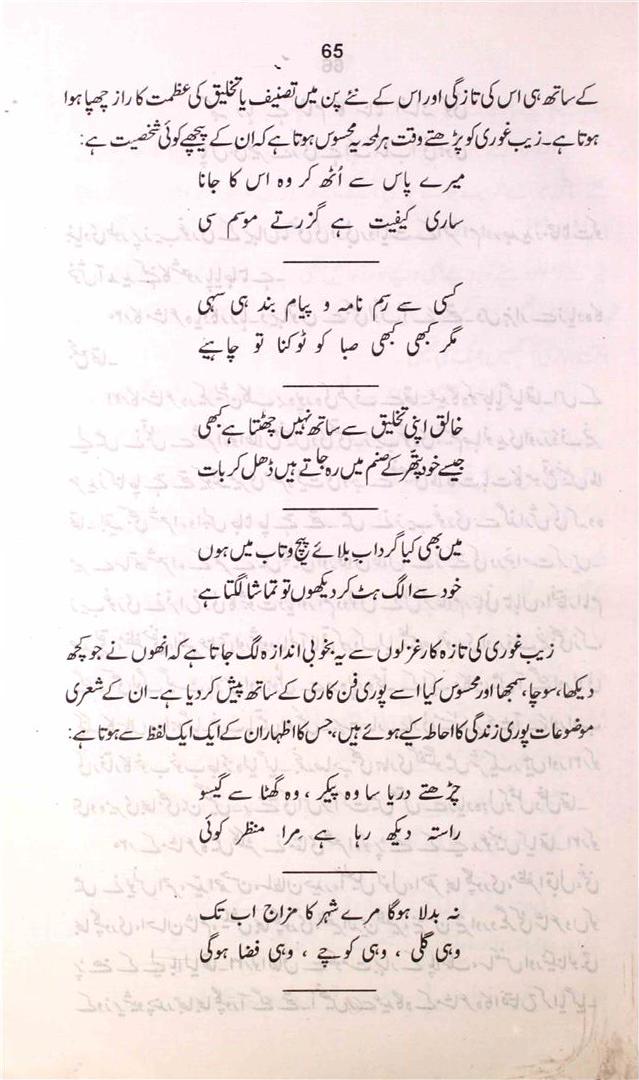 65
کے ساتھ ہی اس کی تازگی اور اس کے نئے پن میں تصنیف یا تخلیق کی عظمت کا راز چھپا ہوا
ہوتا ہے۔ زیب غوری کو پڑھتے وقت ہر لمحہ یہ محسوس ہوتا ہے کہ ان کے پیچھے کوئی شخصیت ہے:
میرے پاس سے اُٹھ کر وہ اس کا جانا
ساری کیفیت ہے گزرتے موسم سی
کسی سے رسم نامہ و پیام بند ہی سہی
مگر کبھی کبھی صبا کو ٹوکنا تو چاہیے
خالق اپنی تخلیق سے ساتھ نہیں چھٹتا ہے کبھی
جیسے خود پتّھر کے صنم میں رہ جاتے ہیں ڈھل کر ہات
میں بھی کیا گرداب بلائے پیچ و تاب میں ہوں
خود سے الگ ہٹ کر دیکھوں تو تماشا لگتا ہے
زیب غوری کی تازہ کار غزلوں سے یہ بخوبی اندازہ لگ جاتا ہے کہ انھوں نے جو کچھ
دیکھا، سوچا، سمجھا اور محسوس کیا اسے پوری فن کاری کے ساتھ پیش کر دیا ہے۔ ان کے شعری
موضوعات پوری زندگی کا احاطہ کیے ہوئے ہیں، جس کا اظہار ان کے ایک ایک لفظ سے ہوتا ہے:
چڑھتے دریا سا وہ پیکر، وہ گھٹا سے گیسو
راستہ دیکھ رہا ہے مِرا منظر کوئی
نہ بدلا ہوگا مرے شہر کا مزاج اب تک
وہی گلی، وہی کوچے، وہی فضا ہوگی